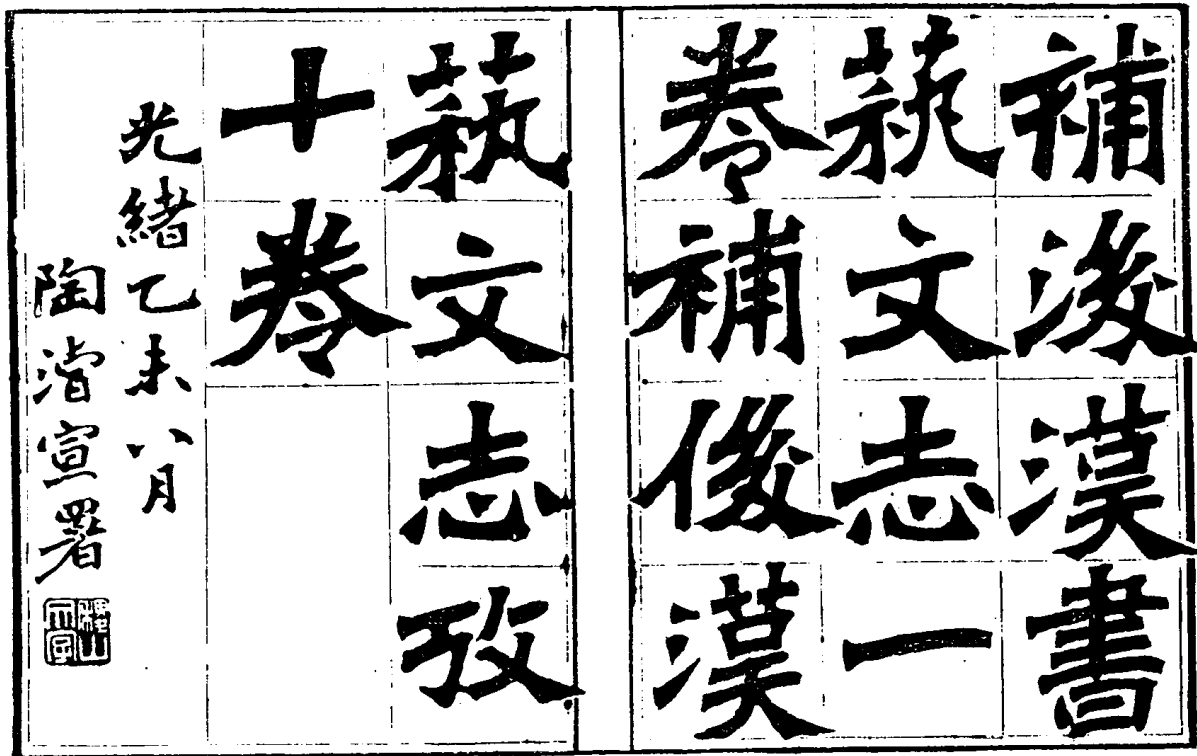 補後漢書
蓺文志一
卷補後漢
蓺文志攷
十卷
光緒乙未八月
陶濬宣署